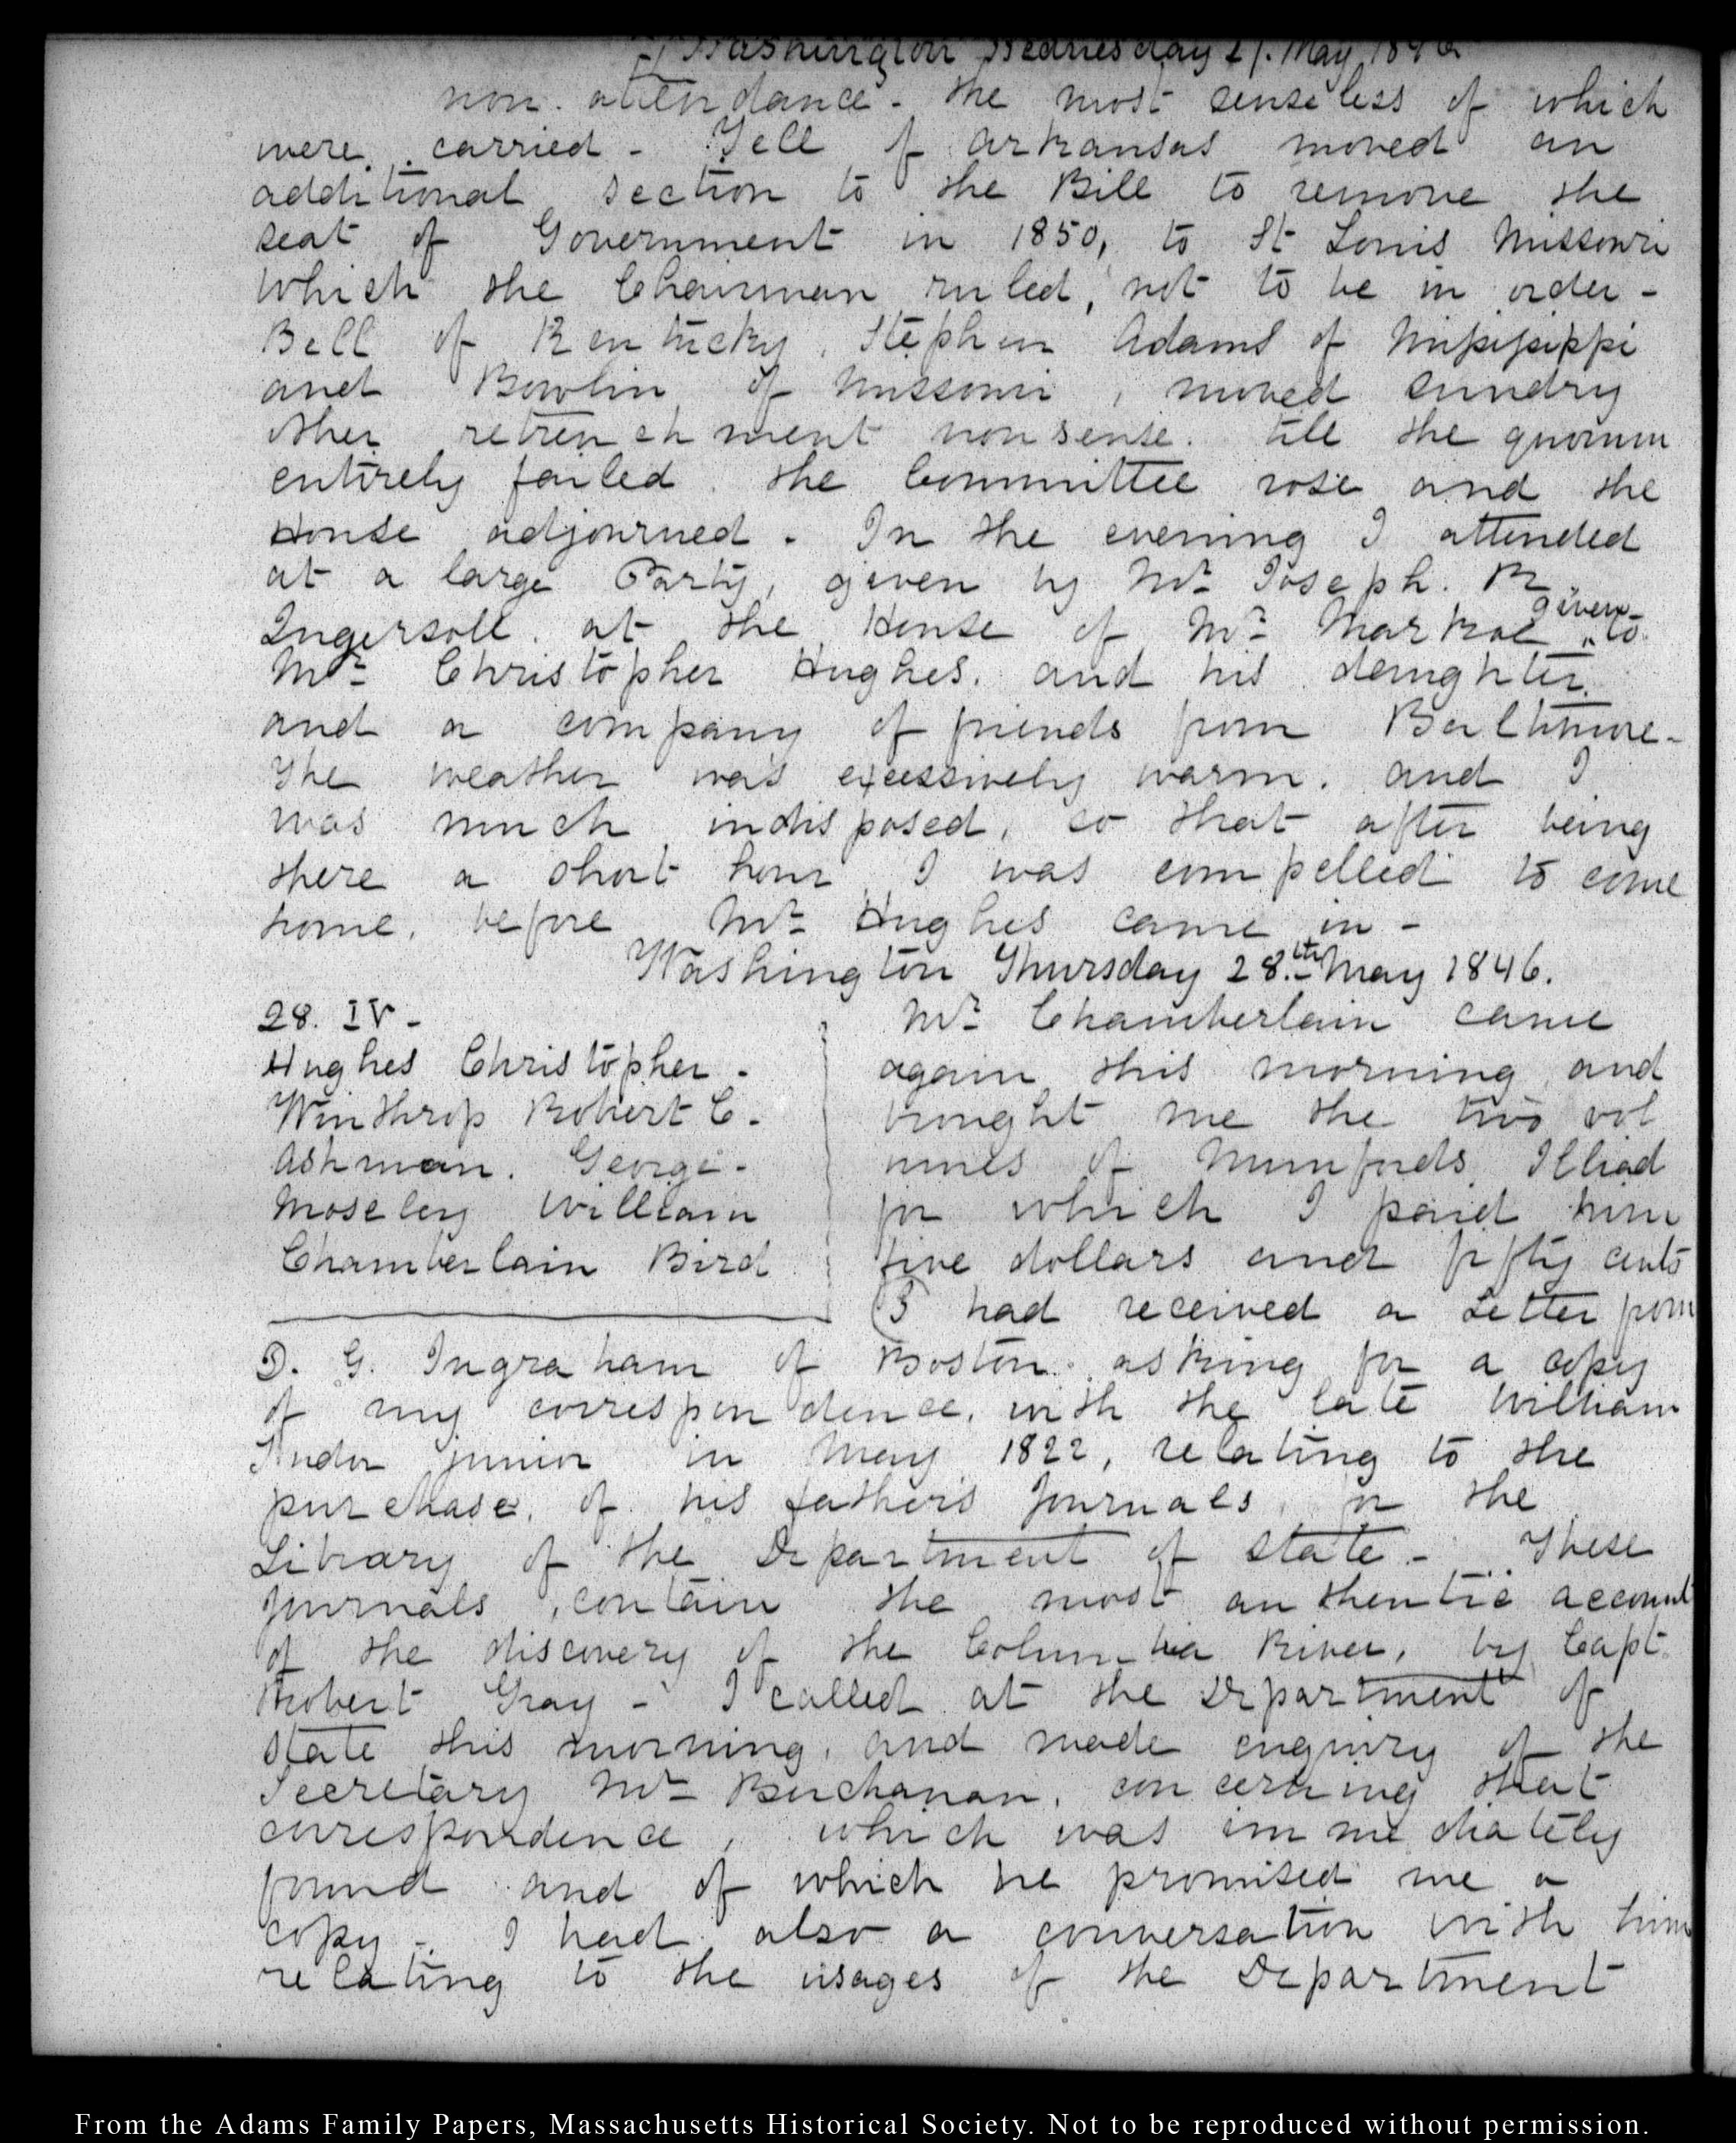 Washington Wednesday 27. May 1846
non. attendance - the most senseless of which
were carried - Yell of Arkansas moved an
additional section to the Bill to remove the
seat of Government in 1850, to St Louis Missouri
which the Chairman ruled, not to be in order -
Bell of Kentucky, Stephen Adams of Mississippi
and Bowlin of Missouri, moved sundry
other retrenchment nonsense. till the quorum
entirely failed. the Committee rose and the
House adjourned - In the evening I attended
at a large Party, given by Mr Joseph. R.
Ingersoll. at the House of Mr Markoe given to
Mr Christopher Hughes. and his daughter
and a company of friends from Baltimore -
The weather was excessively warm. and I
was much indisposed, so that after being
there a short hour I was compelled to come
home, before Mr Hughes came in -
Washington Thursday 28.th May 1846.
28. IV -
Hughes Christopher -
Winthrop Robert C -
Ashman. George -
Moseley William
Chamberlain Bird
Mr Chamberlain came
again this morning and
brought me the two vol
umes of Munfords Illiad
for which I paid him
five dollars and fifty cents
I had received a Letter from
D. G. Ingraham of Boston. asking for a copy
of my correspondence, with the late William
Tudor junior in May 1822, relating to the
purchase, of his father's Journals, for the
Library of the Department of State - These
journals, contain the most authentic account
of the discovery of the Columbia River, by Capt.
Robert Gray - I called at the Department of
State this morning, and made enquiry of the
Secretary Mr Buchanan, concerning that
correspondence, which was immediately
found and of which he promised me a
copy - I had also a conversation with him
relating to the usages of the Department
From the Adams Family Papers, Massachusetts Historical Society. Not to be reproduced without permission.